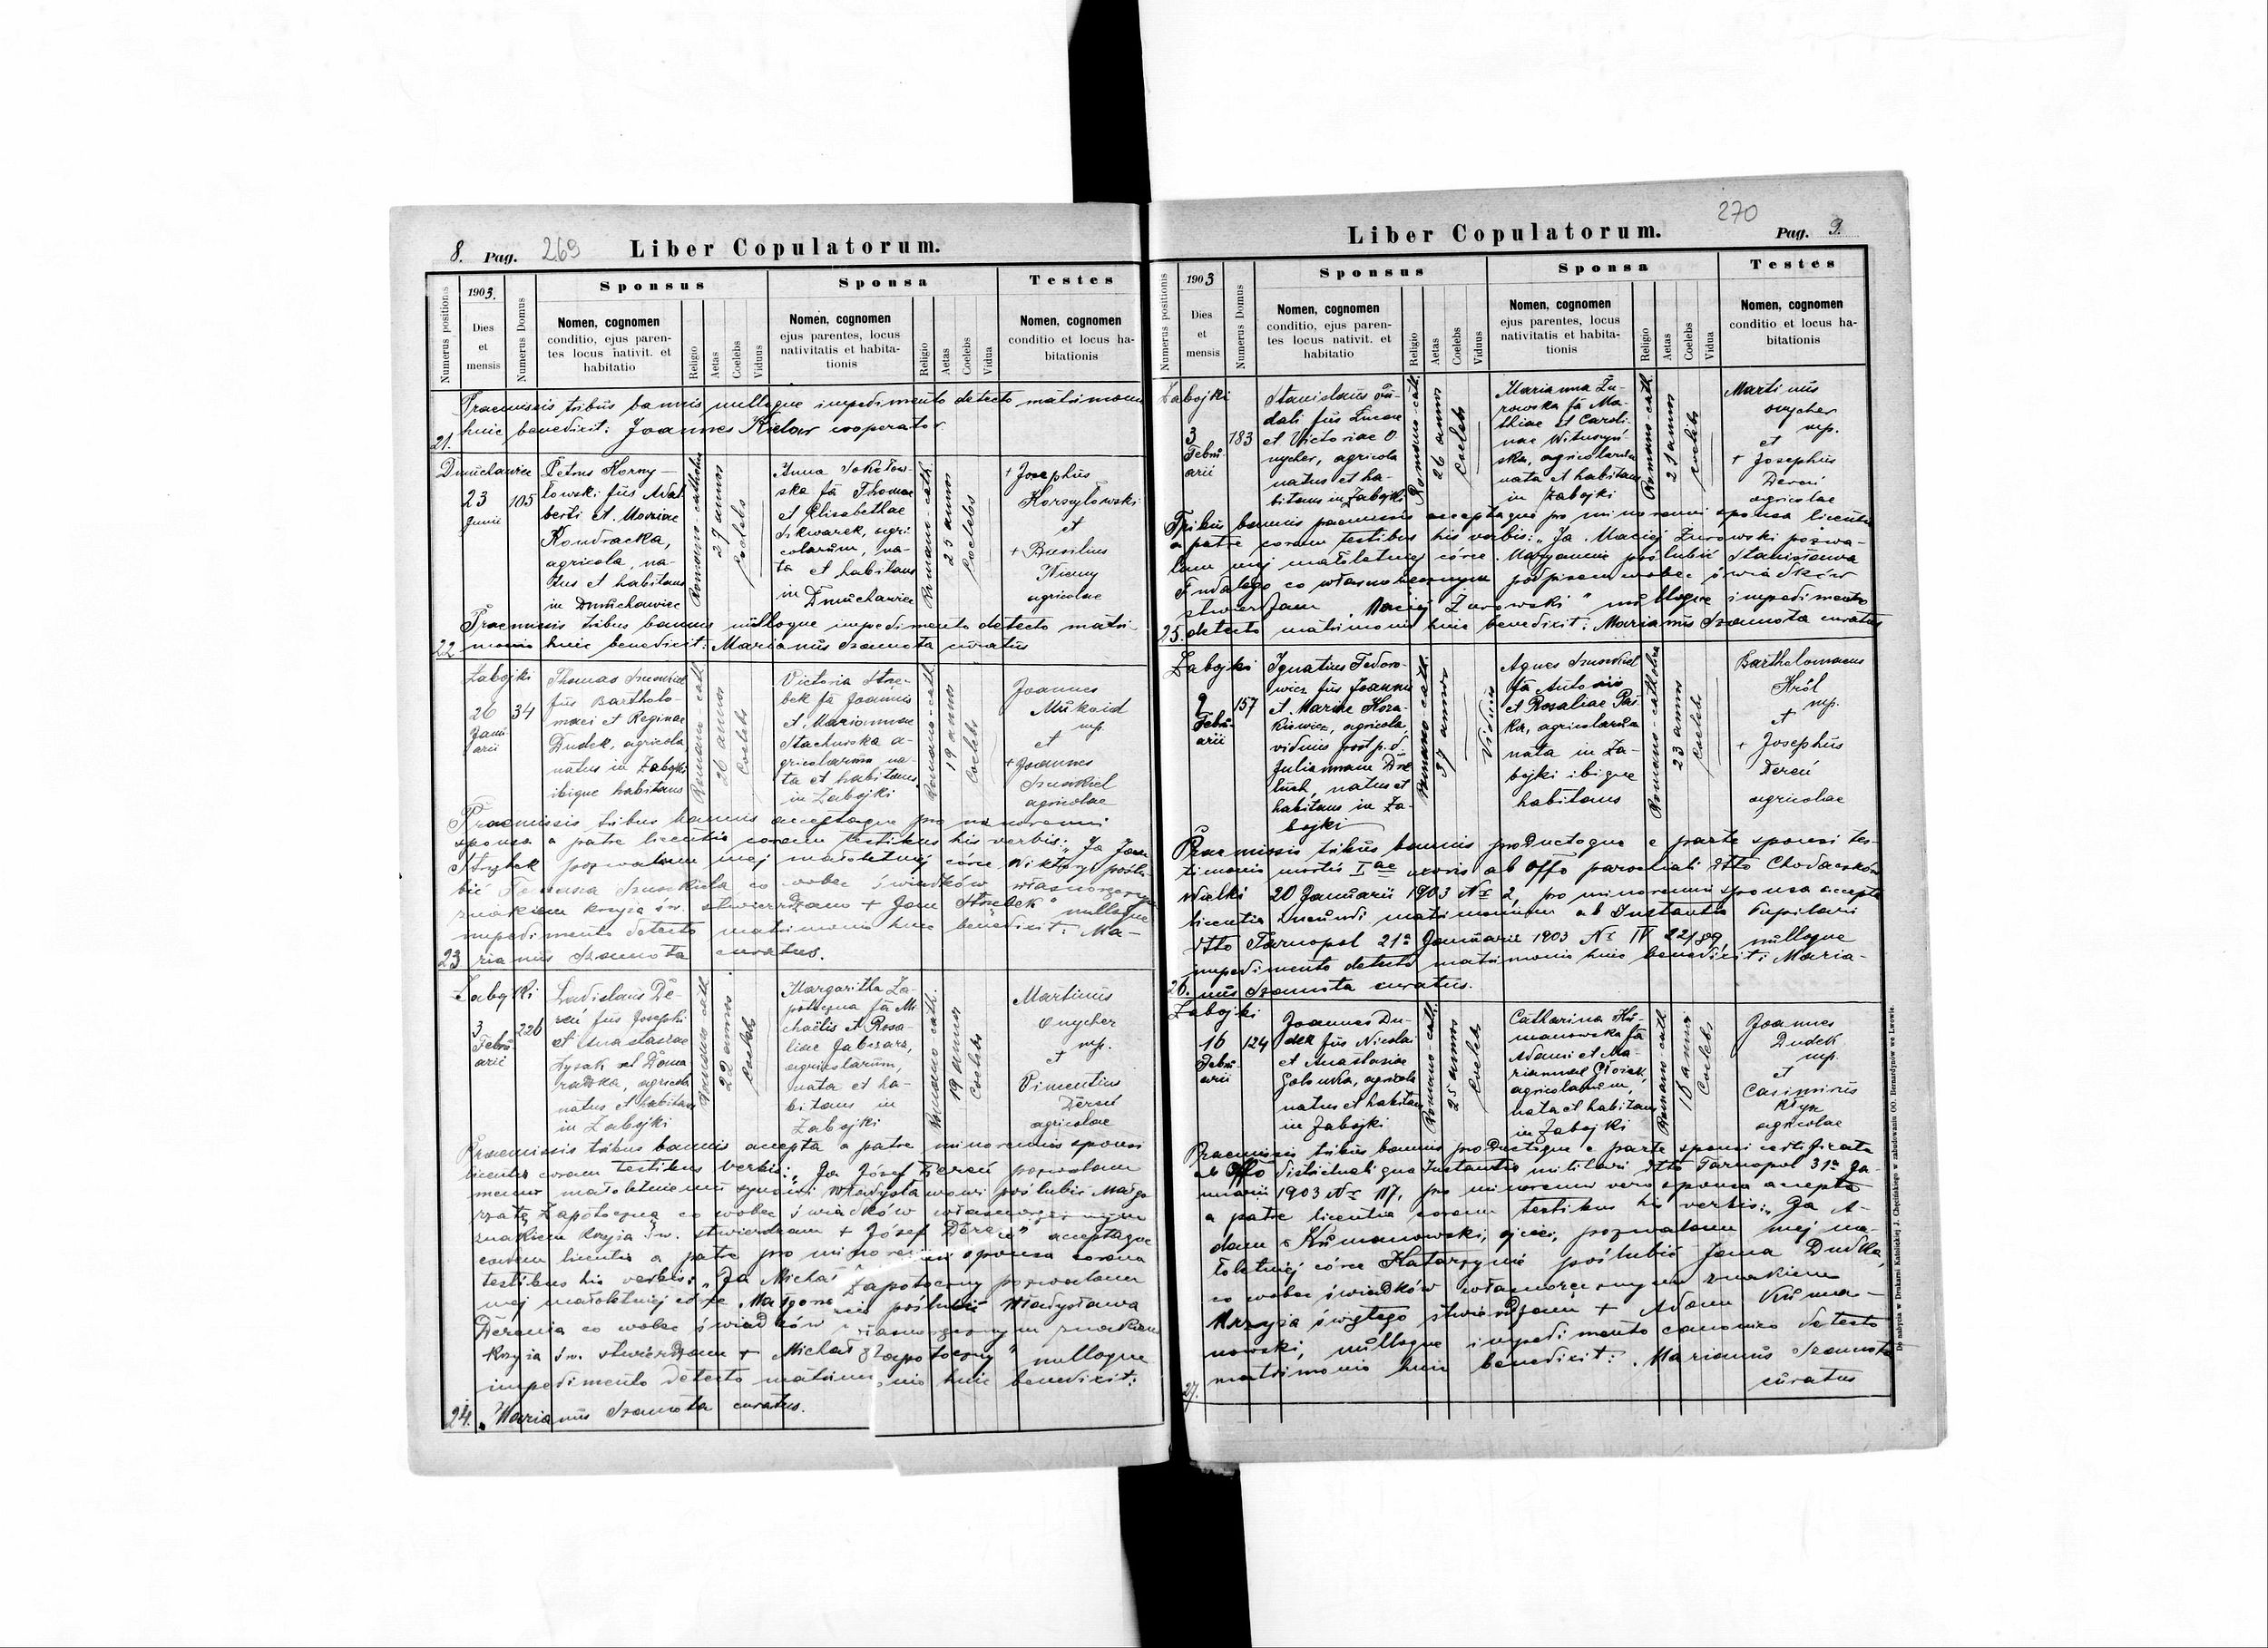 8. Pag. 269 Liber Copulatorum.
Numerus positionis
1903.
Dies
et
mensis
Numerus Domus
Sponsus
Nomen, cognomen
conditio, ejus paren-
tes locus nativit. et
habitatio
Religio
Aetas
Coelebs
Viduus
Sponsa
Nomen, cognomen
ejus parentes, locus
nativitatis et habita-
tionis
Religio
Aetas
Coelebs
Vidua
Testes
Nomen, cognomen
conditio et locus ha-
bitationis
Praemissis tribus bannis nulloque impedimento detecto matrimonio
huic benedixit: Joannes Kielar cooperator
21.
Dmuchawiec
23
Junii
105
Petrus Korny-
łowski fius Adal
berti et Mariae
Kondracka,
agricola, na-
tus et habitans
in Dmuchawiec
Romano-catholica
27 annos
Coelebs
Anna Sokołow-
ska fa Thomae
et Elisabethae
Skwarek, agri
colarum, na-
ta et habitans
in Dmuchawiec
Romano-cath.
25 annos
Coelebs
+ Josephus
Kornyłowski
et
+ Basilius
agricolae
Praemissis tribus bannis nulloque impedimento detecto matri-
22 monio huic benedixit: Marianus Szamota curatus
Zabojki
26
Janu
arii
34
Thomas Szmukiel
fius Bartholo-
maei et Reginae
Dudek, agricola
natus in Zabojki
ibique habitans
Romano cath.
26 annos
Coelebs
Victoria Strze-
bek fa Joannis
et Mariannae
Stachurska a-
gricolarum na-
ta et habitans
in Zabojki
Romano-cath.
19 annos
Coelebs
Joannes
mp.
et
+ Joannes
Szmukiel
agricolae
Praemissis tribus bannis acceptaque pro minorenni
sponsa a patre licentia coram testibus his verbis: „Ja Jan
pozwalam mej małoletniej córce Wiktoryi poślu-
bić Tomasza Szmukiela, co wobec świadków własnoręcznym
znakiem krzyża św. stwierdzam + Jan Strzebek" nulloque
impedimento detecto matrimonio huic benedixit: Ma-
23 rianus Szamota curatus.
Zabojki
3
Febru
arii
226
Ladislaus De-
reń fius Josephi
et Anastasiae
Łysak et Doma
radzka, agricola
natus et habitans
in Zabojki
Romano cath.
22 annos
Coelebs
Margaritha Za-
potoczna fa Mi
chaëlis et Rosa-
liae
agricolarum,
nata et ha-
bitans in
Zabojki
Romano-cath.
19 annos
Coelebs
Martinus
Onycher
mp.
et
Dereń
agricolae
Praemissis tribus bannis accepta a patre minorennis sponsi
licentia coram testibus verbis: „Ja Józef Dereń pozwalam
memu małoletniemu synowi Władysławowi poślubić Małgo
rzatę Zapotoczną co wobec świadków własnoręcznym
znakiem krzyża św. stwierdzam + Józef Dereń" acceptaque
eadem licentia a patre pro minorenni sponsa coram
testibus his verbis: „Ja Michał Zapotoczny pozwalam
mej małoletniej córce poślubić Władysława
Derenia co wobec świadków własnoręcznym znakiem
krzyża św. stwierdzam + Michał Zapotoczny" nulloque
impedimento detecto matrimonio huic benedixit:
24. Marianus Szamota curatus.
Liber Copulatorum. 270 Pag. 9.
Numerus positionis
1903
Dies
et
mensis
Numerus Domus
Sponsus
Nomen, cognomen
conditio, ejus paren-
tes locus nativit. et
habitatio
Religio
Aetas
Coelebs
Viduus
Sponsa
Nomen, cognomen
ejus parentes, locus
nativitatis et habita-
tionis
Religio
Aetas
Coelebs
Vidua
Testes
Nomen, cognomen
conditio et locus ha-
bitationis
Zabojki
3
Febru
arii
183
Stanislaus Fu-
dali fius Lucae
et Victoriae O
nycher, agricola
natus et ha-
bitans in Zabojki
Romano-cath.
26 annos
Coelebs
Marianna Żu-
rowska fa Ma-
thiae et Caroli-
nae Wituszyń-
ska, agricolarum
nata et habitans
in Zabojki
Romano-cath.
21 annos
Coelebs
Martinus
Onycher
mp.
et
+ Josephus
Dereń
agricolae
Tribus bannis praemissis acceptaque pro minorenni sponsa licentia
a patre coram testibus his verbis: „Ja Maciej Żurowski pozwa-
lam mej małoletniej córce Maryannie poślubić Stanisława
Fudalego co własnoręcznym podpisem wobec świadków
stwierdzam Maciej Żurowski" nulloque impedimento
25. detecto matrimonio huic benedixit: Marianus Szamota curatus
Zabojki
9
Febru
arii
157
Ignatius Fedoro-
wicz fius Joannis
et Mariae Koza-
kiewicz, agricola,
viduus post p. d.
Juliannam
natus et
habitans in Za-
bojki
Romano-cath.
37 annos
Viduus
Agnes Szmukiel
fa Antonii
et Rosaliae Paś-
ka, agricolarum
nata in Za-
bojki ibique
habitans
Romano-catholica
23 annos
Coelebs
Bartholomaeus
Król
mp.
et
+ Josephus
Dereń
agricolae
Praemissis tribus bannis productoque e parte sponsi tes-
timonio mortis Iae uxoris ab Offo parochiali dtto Chodaczków
Wielki 20 Januarii 1903 Nr 2, pro minorenni sponsa accepta
licentia ineundi matrimonium ab Instantia Pupilari
dtto Tarnopol 21a Januarii 1903 Nr IV 22/89, nulloque
impedimento detecto matrimonio huic benedixit: Maria-
26. nus Szamota curatus.
Zabojki
16
Febru
arii
124
Joannes Du-
dek fius Nicolai
et Anastasiae
Golonka, agricola
natus et habitans
in Zabojki
Romano-cath.
25 annos
Coelebs
Catharina Ku-
manowska fa
Adami et Ma-
riannae
agricolarum,
nata et habitans
in Zabojki
Romano-cath.
18 annos
Coelebs
Joannes
Dudek
mp.
et
Casimirus
agricolae
Praemissis tribus bannis productisque e parte sponsi certificato
ab Offo districtuali qua Instantia militari dtto Tarnopol 31a Ja-
nuarii 1903 Nr 117, pro minorenni vero sponsa accepta
a patre licentia coram testibus his verbis: „Ja A-
dam Kumanowski, ojciec, pozwalam mej ma-
łoletniej córce Katarzynie poślubić Jana Dudka,
co wobec świadków własnoręcznym znakiem
krzyża świętego stwierdzam + Adam Kuma-
nowski, nulloque impedimento canonico detecto
matrimonio huic benedixit: Marianus Szamota
27. curatus
Do nabycia w Drukarni Katolickiej J. Chęcińskiego w zabudowaniu OO. Bernardynów we Lwowie.